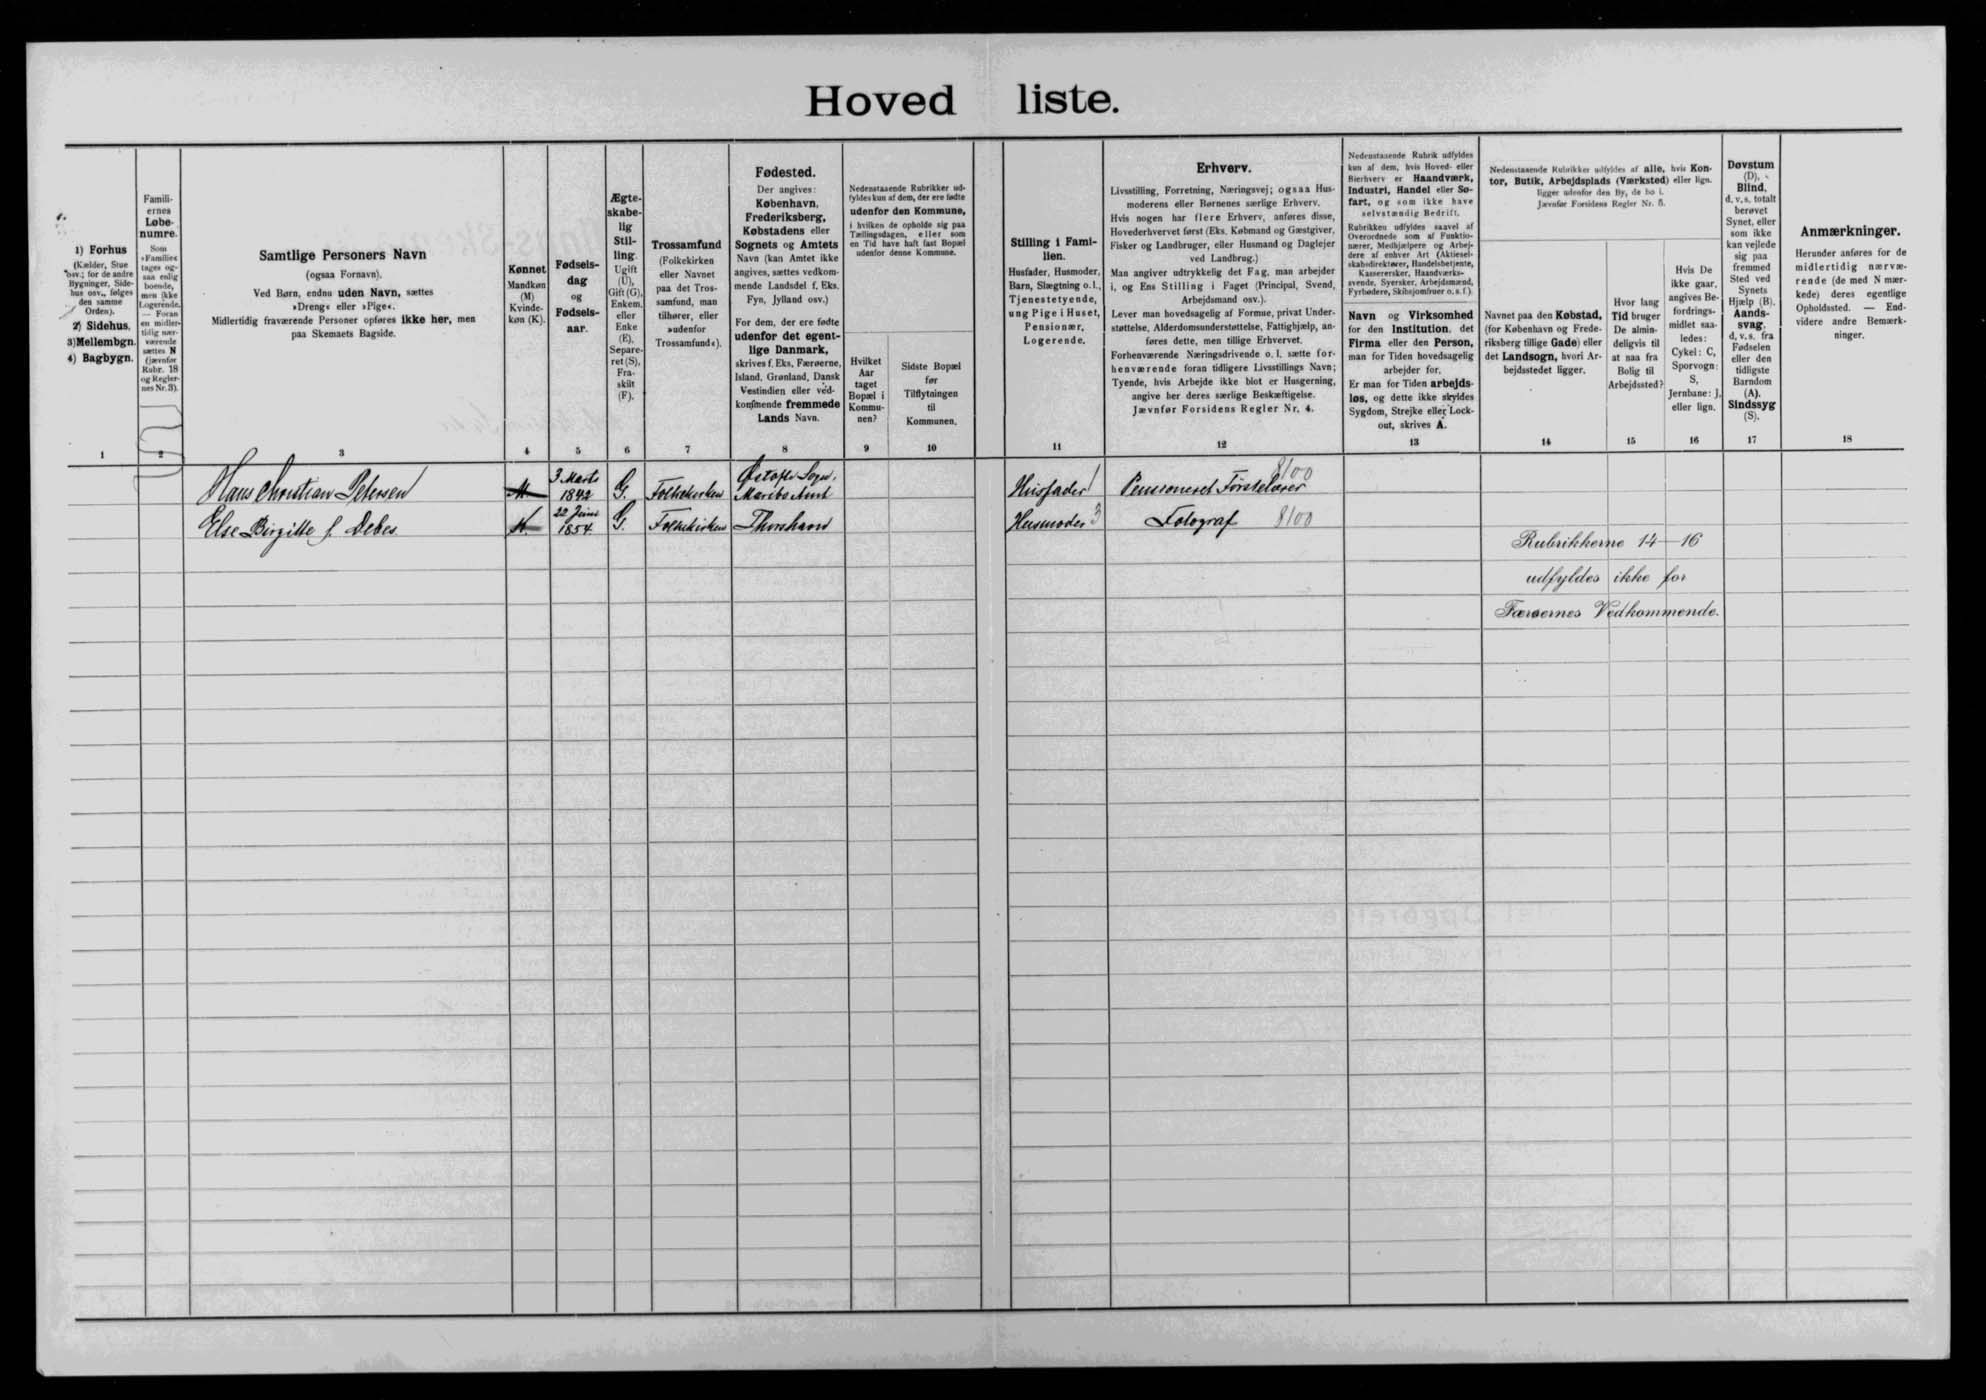 Hoved liste.
1) Forhus
(Kælder, Stue
osv.; for de andre
Bygninger, Side-
hus osv., følges
den samme
Orden).
2) Sidehus.
3) Mellembgn.
4) Bagbygn.
1
Famili-
ernes
Løbe-
numre.
Som
»Familie«
tages og-
saa enlig
boende,
men ikke
Logerende.
— Foran
en midler-
tidig nær-
værende
sættes N
(jævnfør
Rubr. 18
og Regler-
nes Nr. 3).
2
Samtlige Personers Navn
(ogsaa Fornavn).
Ved Børn, endnu uden Navn, sættes
»Dreng« eller »Pige«.
Midlertidig fraværende Personer opføres ikke her, men
paa Skemaets Bagside.
3
Kønnet
Mandkøn
(M)
Kvinde-
køn (K).
4
Fødsels-
dag
og
Fødsels-
aar.
5
Ægte-
skabe-
lig
Stil-
ling.
Ugift
(U),
Gift (G),
Enkem.
eller
Enke
(E),
Separe-
ret (S),
Fra-
skilt
(F).
6
Trossamfund
(Folkekirken
eller Navnet
paa det Tros-
samfund, man
tilhører, eller
»udenfor
Trossamfund«).
7
Fødested.
Der angives:
København,
Frederiksberg,
Købstadens eller
Sognets og Amtets
Navn (kan Amtet ikke
angives, sættes vedkom-
mende Landsdel f. Eks.
Fyn, Jylland osv.)
For dem, der ere fødte
udenfor det egent-
lige Danmark,
skrives f. Eks. Færøerne,
Island, Grønland, Dansk
Vestindien eller ved-
kommende fremmede
Lands Navn.
8
Nedenstaaende Rubrikker ud-
fyldes kun af dem, der ere fødte
udenfor den Kommune,
i hvilken de opholde sig paa
Tællingsdagen, eller som
en Tid have haft fast Bopæl
udenfor denne Kommune.
Hvilket
Aar
taget
Bopæl i
Kommu-
nen?
9
Sidste Bopæl
før
Tilflytningen
til
Kommunen.
10
Stilling i Fami-
lien.
Husfader, Husmoder,
Barn, Slægtning o. l.,
Tjenestetyende,
ung Pige i Huset,
Pensionær,
Logerende.
11
Erhverv.
Livsstilling, Forretning, Næringsvej; ogsaa Hus-
moderens eller Børnenes særlige Erhverv.
Hvis nogen har flere Erhverv, anføres disse,
Hovederhvervet først (Eks. Købmand og Gæstgiver,
Fisker og Landbruger, eller Husmand og Daglejer
ved Landbrug.)
Man angiver udtrykkelig det Fag, man arbejder
i, og Ens Stilling i Faget (Principal, Svend,
Arbejdsmand osv.).
Lever man hovedsagelig af Formue, privat Under-
støttelse, Alderdomsunderstøttelse, Fattighjælp, an-
føres dette, men tillige Erhvervet.
Forhenværende Næringsdrivende o. l. sætte for-
henværende foran tidligere Livsstillings Navn;
Tyende, hvis Arbejde ikke blot er Husgerning,
angive her deres særlige Beskæftigelse.
Jævnfør Forsidens Regler Nr. 4.
12
Nedenstaaende Rubrik udfyldes
kun af dem, hvis Hoved- eller
Bierhverv er Haandværk,
Industri, Handel eller Sø-
fart, og som ikke have
selvstændig Bedrift.
Rubrikken udfyldes saavel af
Overordnede som af Funktio-
nærer, Medhjælpere og Arbej-
dere af enhver Art (Aktiesel-
skabsdirektører, Handelsbetjente,
Kasserersker, Haandværks-
svende, Syersker, Arbejdsmænd,
Fyrbødere, Skibsjomfruer o. s. f.).
Navn og Virksomhed
for den Institution, det
Firma eller den Person,
man for Tiden hovedsagelig
arbejder for.
Er man for Tiden arbejds-
løs, og dette ikke skyldes
Sygdom, Strejke eller Lock-
out, skrives A.
13
Nedenstaaende Rubrikker udfyldes af alle, hvis Kon-
tor, Butik, Arbejdsplads (Værksted) eller lign.
ligger udenfor den By, de bo i.
Jævnfør Forsidens Regler Nr. 5.
Navnet paa den Købstad,
(for København og Frede-
riksberg tillige Gade) eller
det Landsogn, hvori Ar-
bejdsstedet ligger.
14
Hvor lang
Tid bruger
De almin-
deligvis til
at naa fra
Bolig til
Arbejdssted?
15
Hvis De
ikke gaar,
angives Be-
fordrings-
midlet saa-
ledes:
Cykel: C,
Sporvogn:
S,
Jernbane: J,
eller lign.
16
Døvstum
(D),
Blind,
d. v. s. totalt
berøvet
Synet, eller
som ikke
kan vejlede
sig paa
fremmed
Sted ved
Synets
Hjælp (B).
Aands-
svag,
d. v. s. fra
Fødselen
eller den
tidligste
Barndom
(A).
Sindssyg
(S).
17
Anmærkninger.
Herunder anføres for de
midlertidig nærvæ-
rende (de med N mær-
kede) deres egentlige
Opholdssted. — End-
videre andre Bemærk-
ninger.
18
Hans Christian Petersen M 3 Marts 1842 G. Folkekirken Østofte Sogn, Maribo Amt Husfader 1 Pensioneret Førstelærer 8100
Else Birgitte f. Debes K 22 Juni 1854 G. Folkekirken Thorshavn Husmoder 3 Fotograf 8100
Rubrikkerne 14-16
udfyldes ikke for
Færøernes Vedkommende.